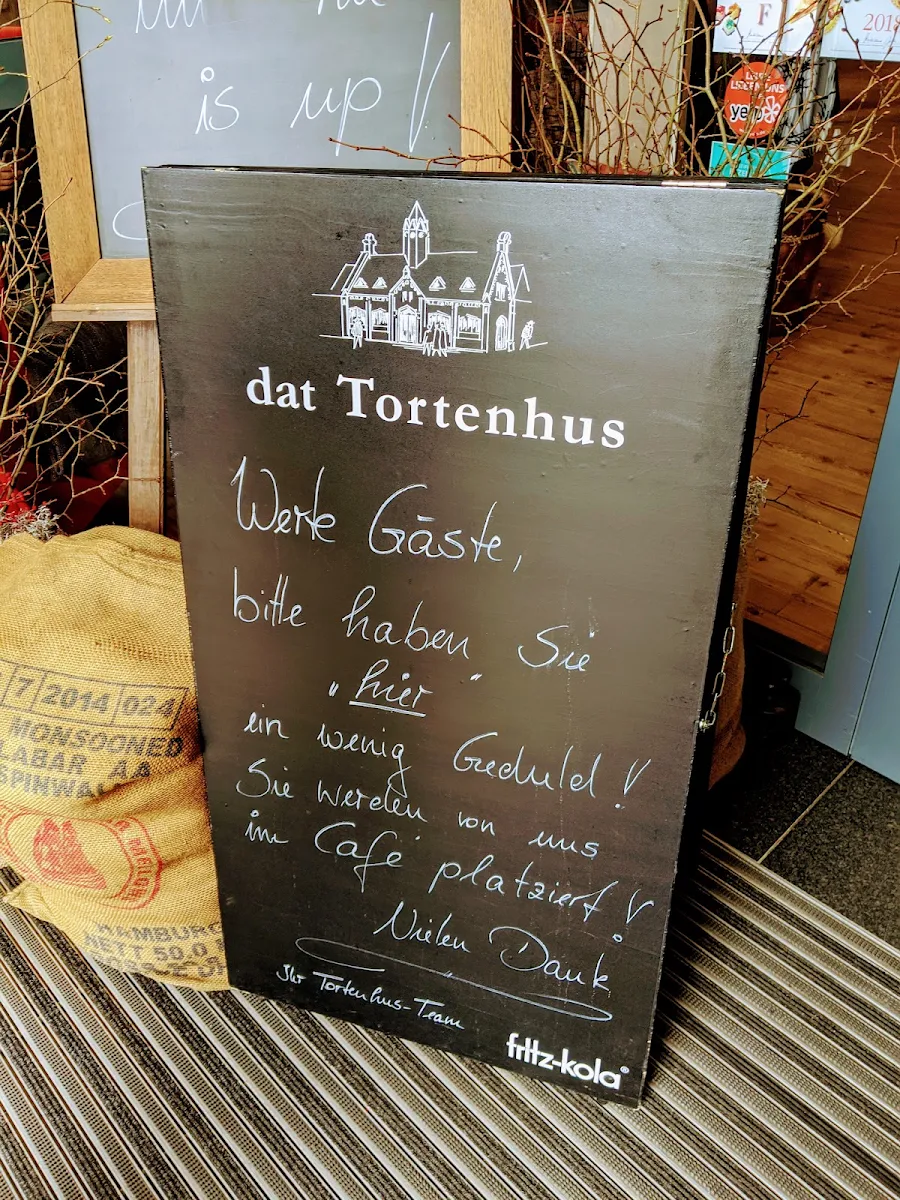 is up!
F
2018
yelp
dat Tortenhus
Werte Gäste,
bitte haben Sie
"hier"
ein wenig Geduld!
Sie werden von uns
im Café platziert!
Vielen Dank
Ihr Tortenhus-Team
fritz-kola®
7 2014 024
MONSOONED
ABAR AA
SPINWAL
HAMBURG
NETT 50.0